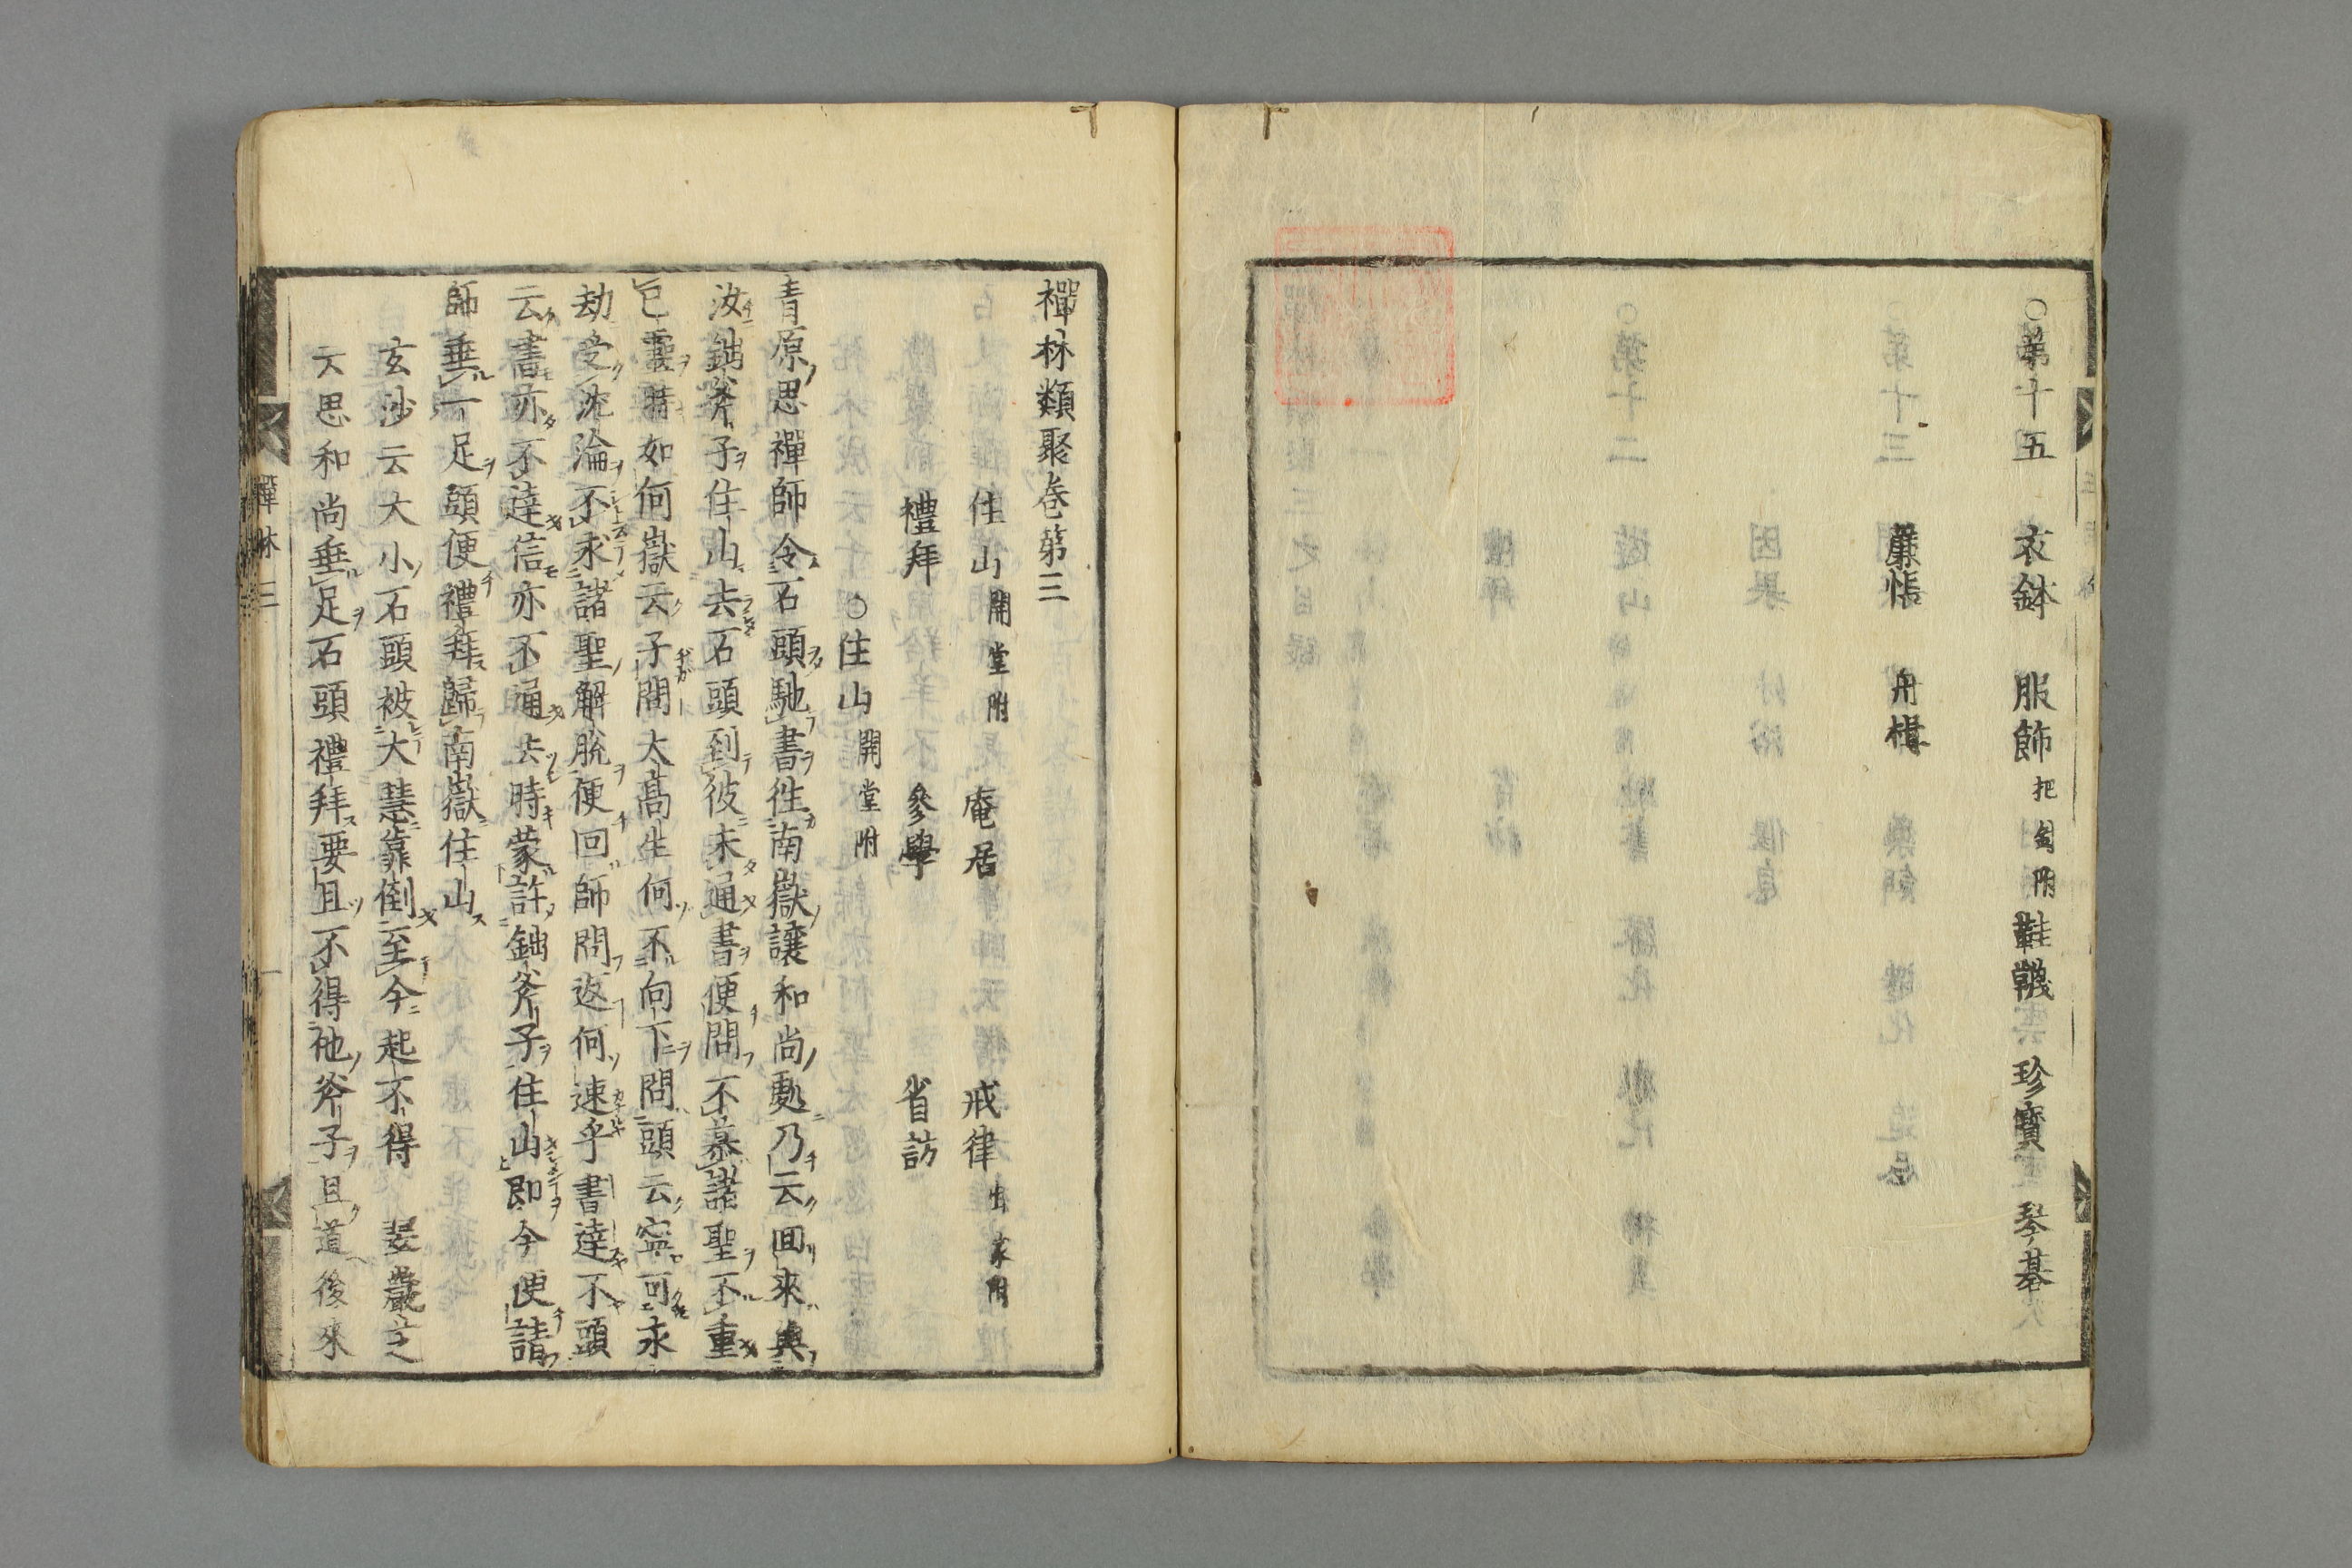 ○第十五　衣鉢　服飾　把劒附　鞋韈　珍寶　琴碁
簾帳　舟檝
禪林類聚卷第三
住山　開堂附　庵居　戒律　出家附
禮拜　參學　省訪
○住山　開堂附
青原思禪師令石頭馳書徃南嶽讓和尚處乃云回來與
汝鈯斧子住山去石頭到彼未通書便問不慕諸聖不重
已靈時如何嶽云子問太髙生何不向下問頭云寧可永
劫受沈淪不求諸聖解脫便回師問返何速乎書達不頭
云書亦不達信亦不通去時蒙許鈯斧子住山即今便請
師垂一足頭便禮拜歸南嶽住山
玄沙云大小石頭被大慧靠倒至今起不得　翠巖芝
云思和尚垂足石頭禮拜要且不得他斧子且道後來
禪林三
一